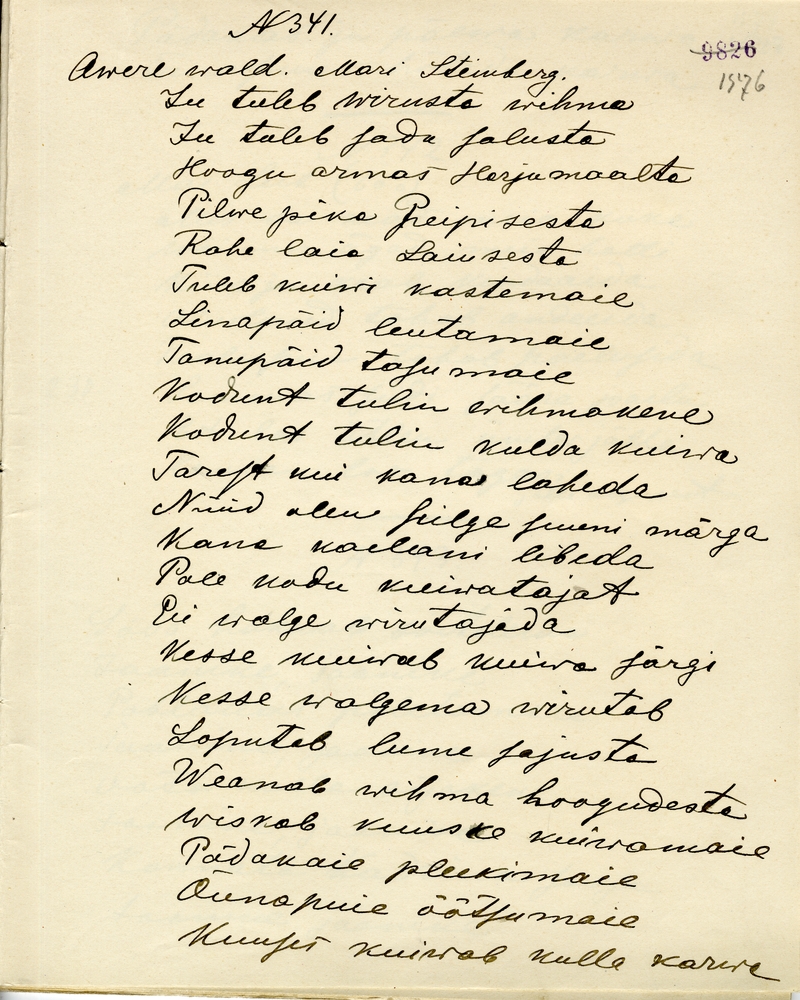 N 341.
9826
1976
Awere wald. Mari Steinberg.
Ju tuleb wirusta wihma
Ju tuleb sadu salusta
Hoogu armas Harjumaalta
Pilwe pika Preipisesta
Rahe laia Laiusesta
Tuleb kuiwi kastemaie
Linapäid leutamaie
Tanupäid tasumaie
Kodunt tulin wihmakene
Kodunt tulin kulda kuiwa
Tarest kui kana laheda
Nüüd olen hilge suuni märga
Kana kaelani libeda
Pole kodu kuiwatajat
Ei walge wirutajada
Kesse kuiwab kuiwa särgi
Kesse walgema wirutab
Loputab lume sajusta
Weanab wihma hoogudesta
wiskab kuuske kuiwamaie
Pädakaie pleekimaie
Õunapuie õõtsumaie
Kuuset kuiwab kulla karwa